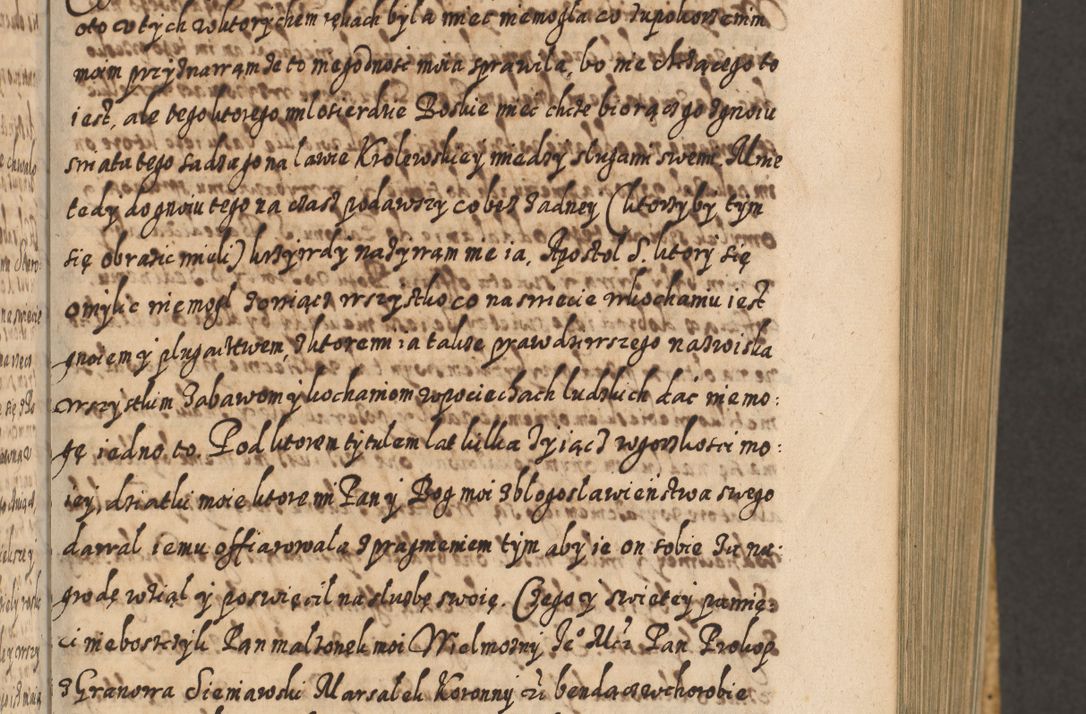 oto co tych w ktorych em rękach była mieć niemogła co z upokorzenim
moim przyznawam że to niegodność moia sprawiła, bo nie chcącego to
iest, ale tego ktorego miłosierdzie Boskie mieć chcze biorącz go z gnoiu
swiata tego sadza go na lawie Krolewskiey miedzy slugami swemi, Mnie
tedy do gnoiu tego na czasz podawszy co bez żadney (ktorzy by tym
się obrazić mieli) krzywdy nazywam nie ia, Apostoł S. ktory się
omylić niemogł zowiącz wszystko co na swiecie w kochamu iest
gnoiem y plugawstwem, z ktoremi ia także prawdziwszego nazwiska
wszystkim zabawom y kochaniom w pociechach ludzkich dać niemo:
gę iedno to. Pod ktorem tytulem lat kilka żyiącz w gorzkości mo:
iey, dziatki moie ktoremi Pan y Bog moi z błogosławieństwa swego
darował iemu offiarowała z pragnieniem tym aby ie on sobie za na:
grodę wziął y poswięcił na służbę swoię. Czego y swietey pamię:
ci nieboszczyk Pan małżonek moi Wielmożny Je° Mcz Pan Prokop
z Granowa Sieniawski Marsałek Koronny &c bendacz w chorobie